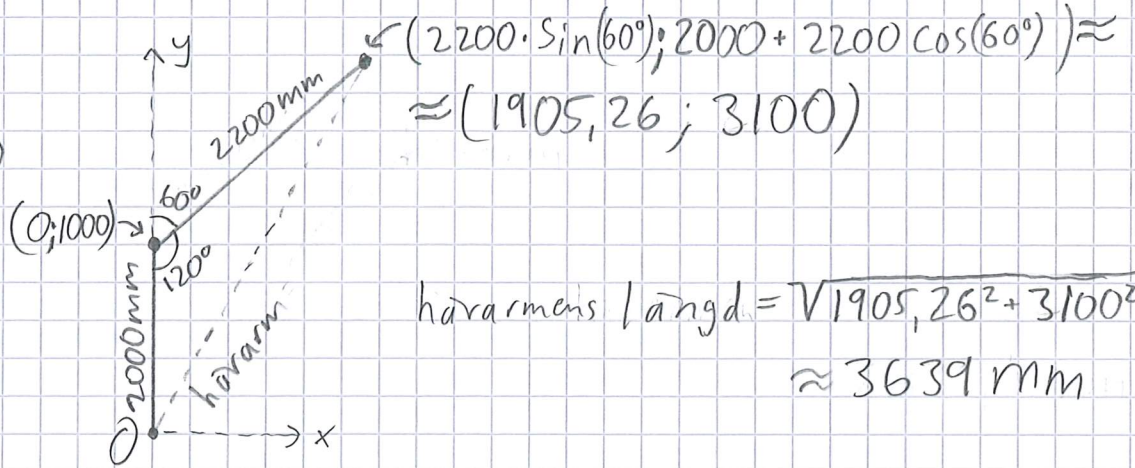 y
(2200·Sin(60°); 2000 + 2200 cos(60°)) ≈
≈ (1905,26 ; 3100)
2200mm
60°
(0;1000)
120°
2000mm
hävarm
hävarmens längd = √1905,26² + 3100²
≈ 3639 mm
O
x